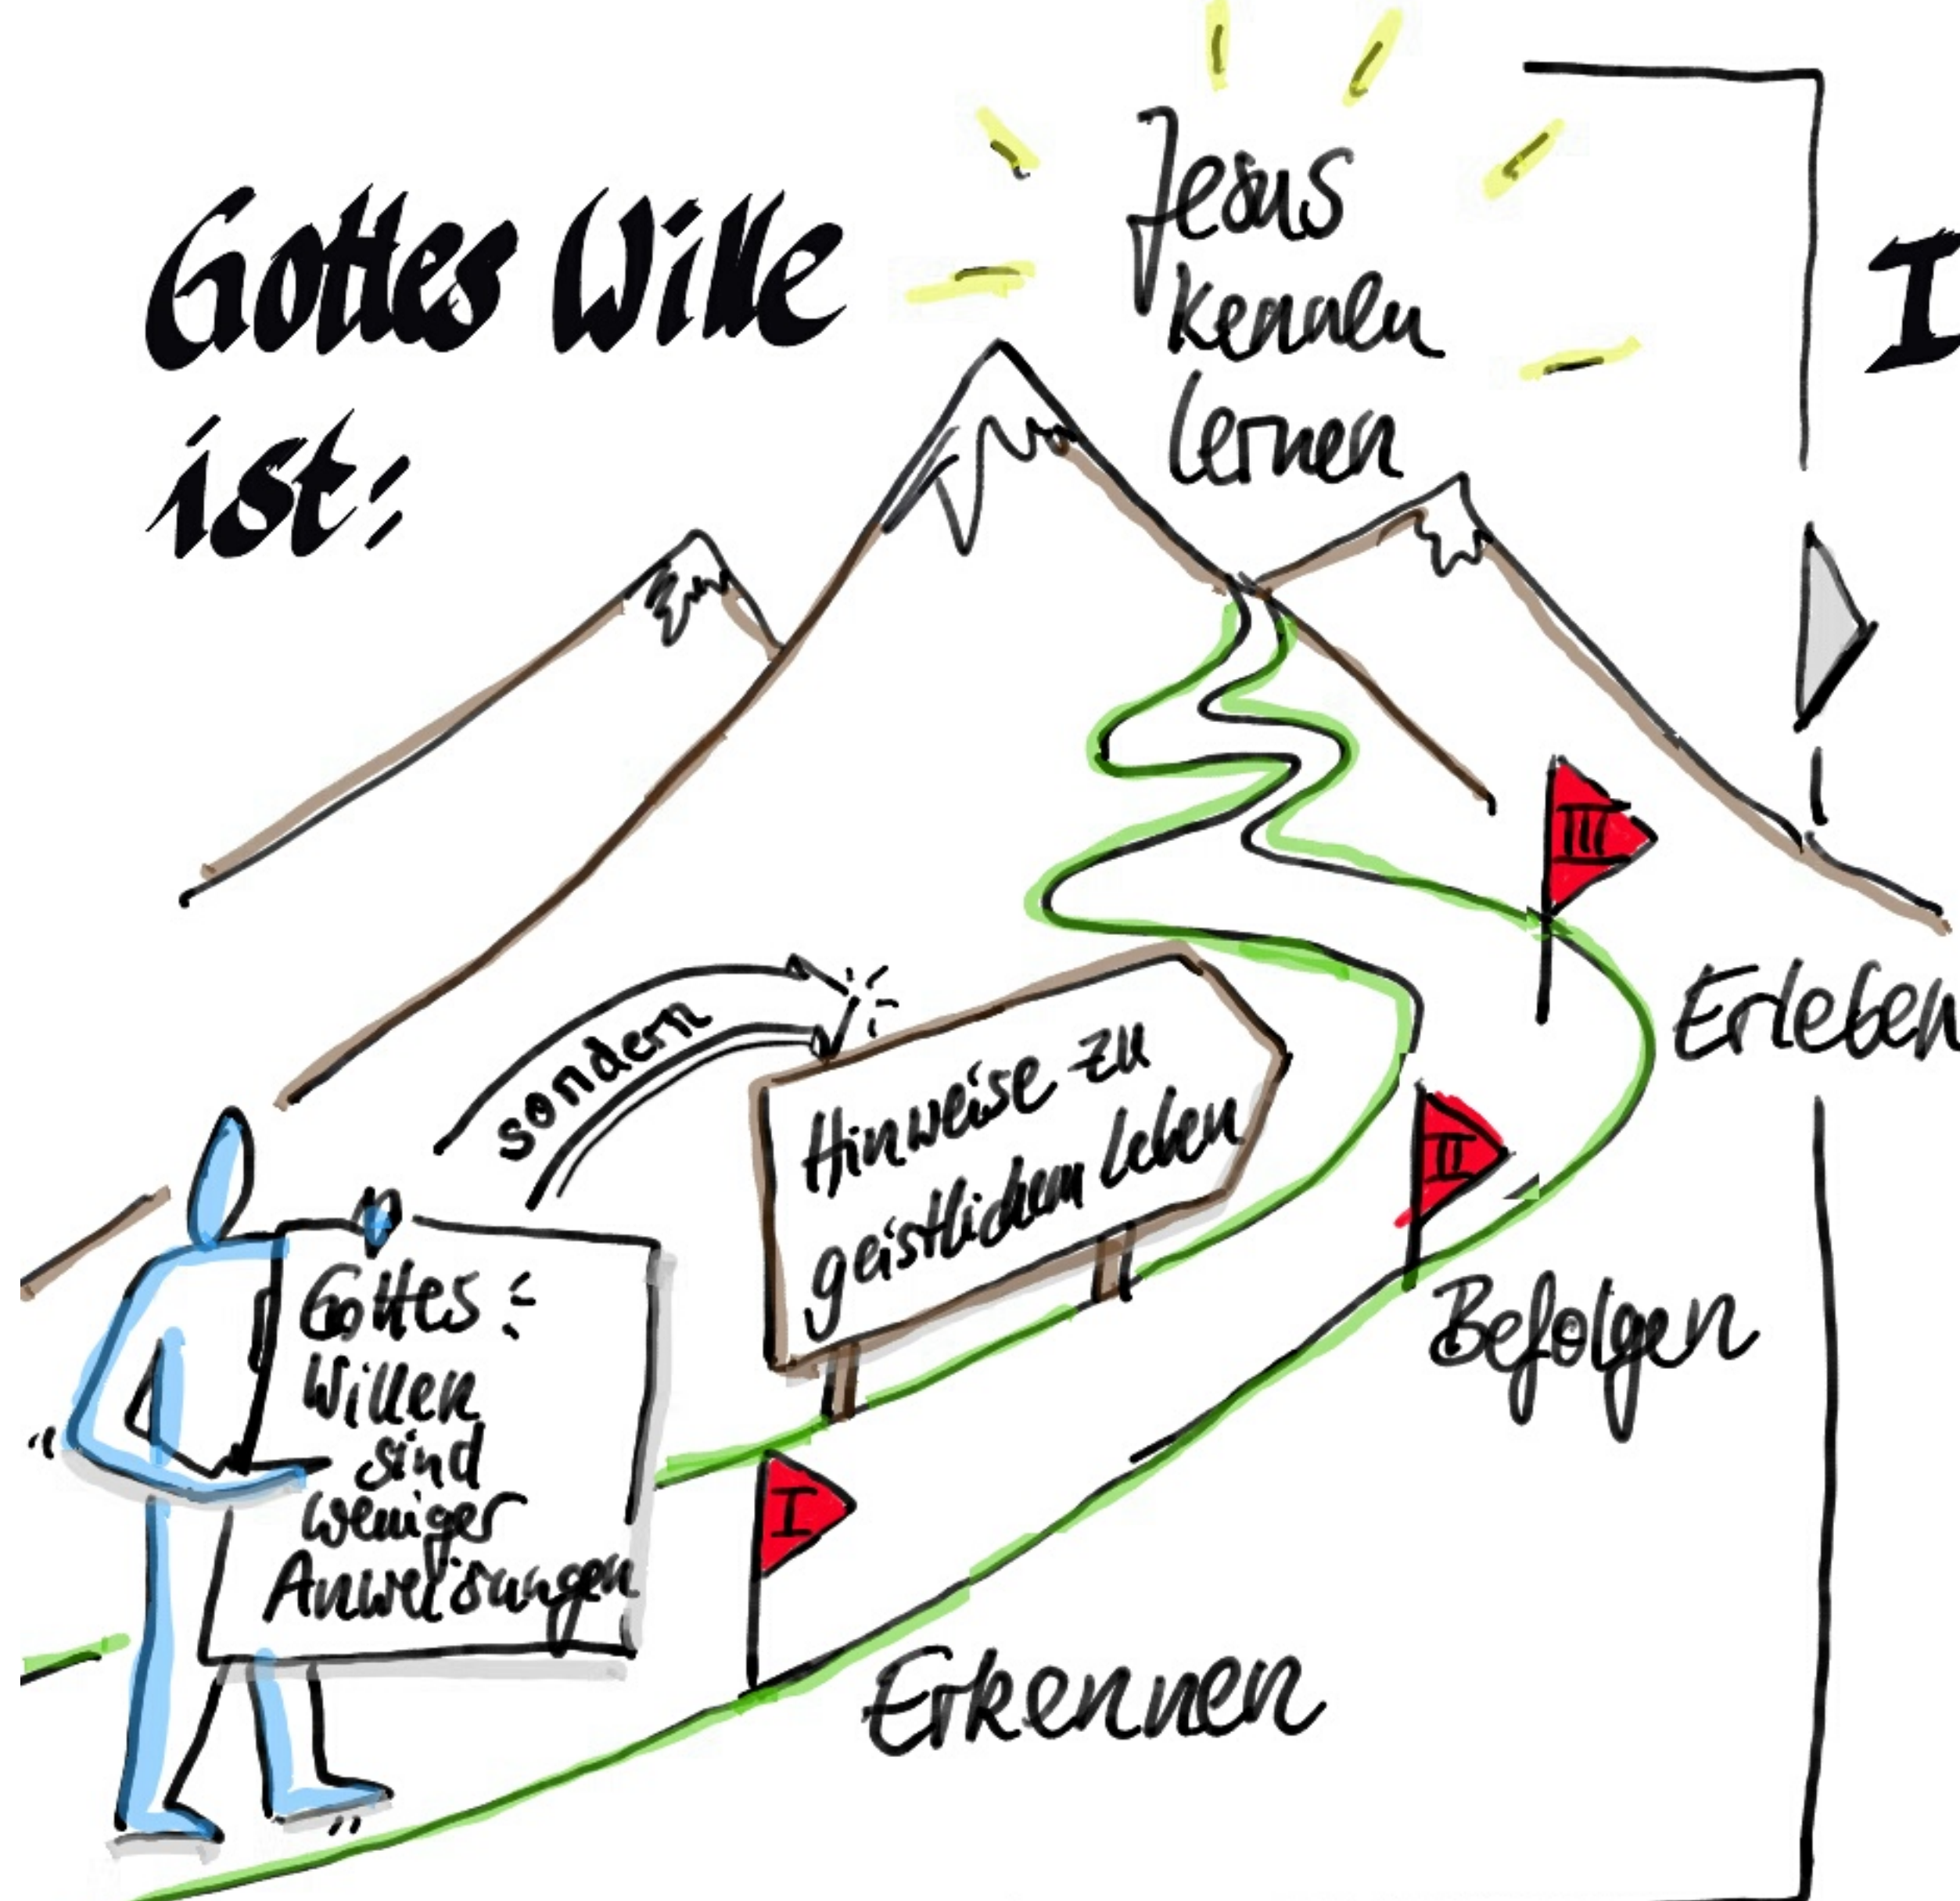 Gottes Wille
ist:
Jesus
kennen
lernen
I
III
Erleben
sondern
Hinweise zu
geistlichem Leben
II
Befolgen
Gottes
Willen
sind
weniger
Anweisungen
I
Erkennen